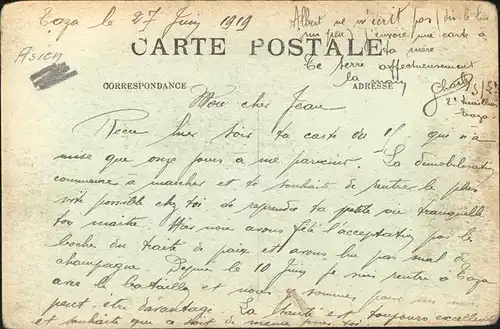 Taza le 27 Juin 1919
Albert ne m'écrit pas, dis le lui
un peu J'envoie une carte à
ta mère
Te serre affectueusement
la main
Charles
Taza
CARTE POSTALE
CORRESPONDANCE
ADRESSE
Mon cher Jean
Reçu hier soir ta carte du 15 qui n'a
mise que onze jours à me parvenir. La démobilisation
commence à marcher et te souhaite de rentrer le plus
vite possible chez toi de reprendre ta petite vie tranquille
ton maître. Hier nous avons fêté l'acceptation par les
boche du traité de paix et avons bu pas mal de
champagne. Depuis le 10 Juin je suis rentré à Taza
avec le bataillon et nous y sommes pour un mois
peut-être davantage. La santé est toujours excellente
et souhaite que ce soit de même pour toi.